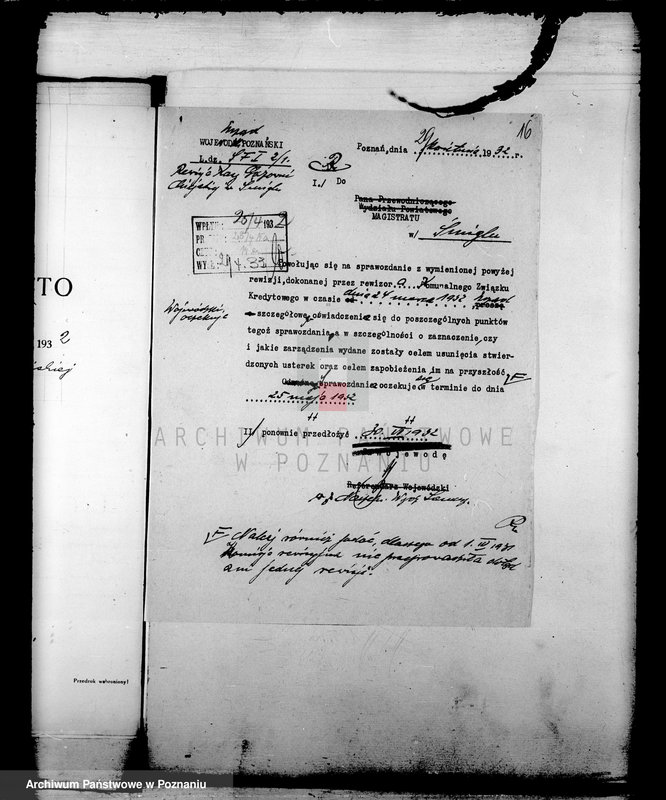 16
Urząd
WOJEWODA POZNAŃSKI
L. dz. S F I 2/1.
Poznań, dnia 20 kwietnia 1932 r.
Rewizja Kasy
Miejskiej w Śmiglu
I./ Do
Pana Przewodniczącego
Wydziału Powiatowego
MAGISTRATU
w/ Śmiglu
WPŁYN. 25/4 1932
Powołując się na sprawozdanie z wymienionej powyżej
rewizji, dokonanej przez rewizora Komunalnego Związku
Kredytowego w czasie dnia 24 marca 1932 Urząd
Wojewódzki
oczekuje
szczegółowego oświadczenia się do poszczególnych punktów
tegoż sprawozdania, a w szczególności o zaznaczenie, czy
i jakie zarządzenia wydane zostały celem usunięcia stwier-
dzonych usterek oraz celem zapobieżenia im na przyszłość
sprawozdania oczekuję w terminie do dnia
25 maja 1932
II/ ponownie przedłożyć 30. VI 1932
Wojewodę
Referendarz Wojewódzki
Należy również podać, dlaczego od 1. 1931
Komisja rewizyjna nie przeprowadziła
ani jednej rewizji.
TO
193 2
Przedruk wzbroniony!
ARCHIWUM PAŃSTWOWE
W POZNANIU
Archiwum Państwowe w Poznaniu